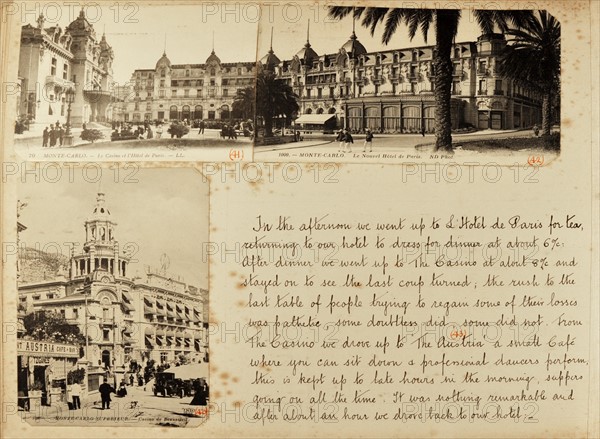 70 MONTE-CARLO. - Le Casino et l'Hôtel de Paris. - LL.
41
1009. - MONTE-CARLO. Le Nouvel Hôtel de Paris. ND Phot
42
In the afternoon we went up to L'Hotel de Paris for tea,
returning to our hotel to dress for dinner at about 6½.
After dinner we went up to The Casino at about 8½ and
stayed on to see the last coup turned, the rush to the
last table of people trying to regain some of their losses
was pathetic, some doubtless did, some did not. From
The Casino we drove up to The Austria a small Café
where you can sit down & professional dancers perform,
this is kept up to late hours in the morning, suppers
going on all the time. It was nothing remarkable and
after about an hour we drove back to our hotel.
43
AUSTRIA CAFÉ BAR
MONTE-CARLO SUPÉRIEUR.